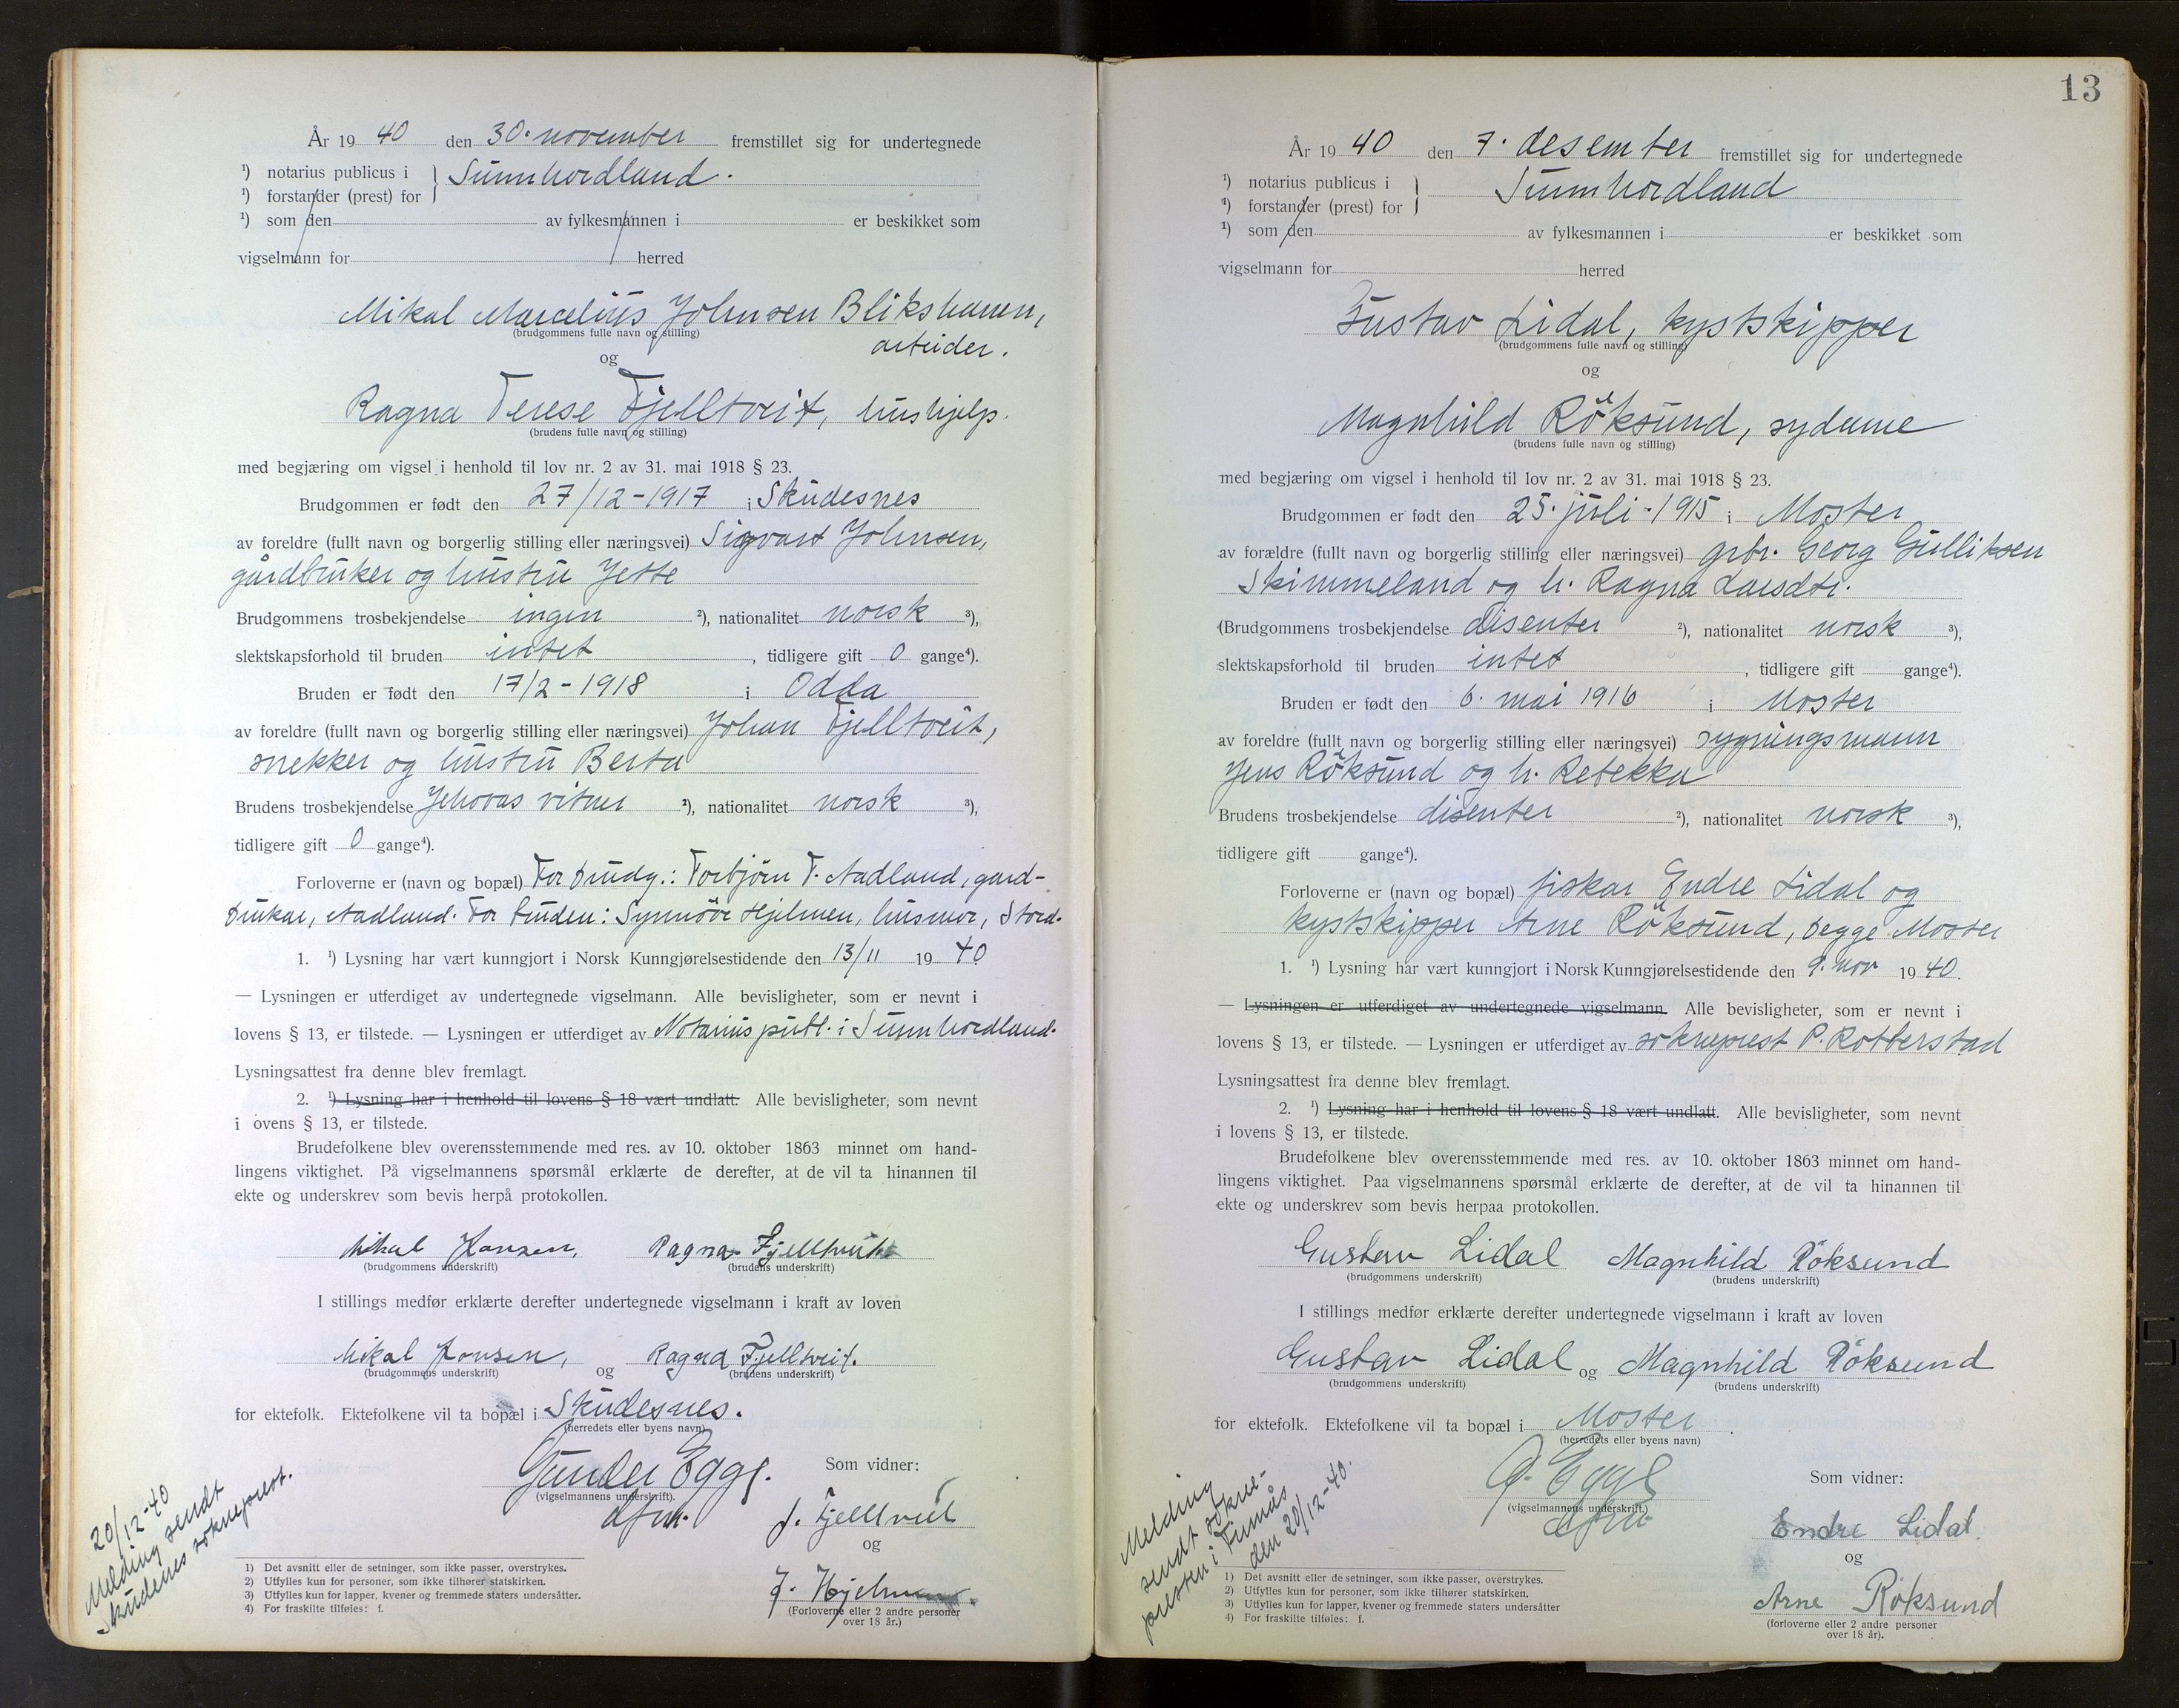 År 19 40 den 30. november fremstillet sig for undertegnede
¹) notarius publicus i } Sunnhordland.
¹) forstander (prest) for
¹) som den av fylkesmannen i er beskikket som
vigselmann for herred
Mikal Marcelius Johnsen Blikshavn,
(brudgommens fulle navn og stilling)
arbeider.
og
Ragna Terese Fjelltveit, hushjelp.
(brudens fulle navn og stilling)
med begjæring om vigsel i henhold til lov nr. 2 av 31. mai 1918 § 23.
Brudgommen er født den 27/12-1917 i Skudesnes
av foreldre (fullt navn og borgerlig stilling eller næringsvei) Sigvart Johnsen,
gårdbruker og hustru Jette
Brudgommens trosbekjendelse ingen ²), nationalitet norsk ³),
slektskapsforhold til bruden intet , tidligere gift 0 gange⁴).
Bruden er født den 17/2-1918 i Odda
av foreldre (fullt navn og borgerlig stilling eller næringsvei) Johan Fjelltveit,
snekker og hustru Berta
Brudens trosbekjendelse Jehovas vitner ²), nationalitet norsk ³),
tidligere gift 0 gange⁴).
Forloverne er (navn og bopæl) For brudg.: Torbjörn T. Aadland, gard-
brukar, Aadland. For bruden: Synnöve Hjelmen, husmor, Stord.
1. ¹) Lysning har vært kunngjort i Norsk Kunngjørelsestidende den 13/11 19 40
— Lysningen er utferdiget av undertegnede vigselmann. Alle bevisligheter, som er nevnt i
lovens § 13, er tilstede. — Lysningen er utferdiget av Notarius publ. i Sunnhordland.
Lysningsattest fra denne blev fremlagt.
2. ¹) Lysning har i henhold til lovens § 18 vært undlatt. Alle bevisligheter, som nevnt
i ovens § 13, er tilstede.
Brudefolkene blev overensstemmende med res. av 10. oktober 1863 minnet om hand-
lingens viktighet. På vigselmannens spørsmål erklærte de derefter, at de vil ta hinannen til
ekte og underskrev som bevis herpå protokollen.
Mikal Jonsen, Ragna Fjelltveit
(brudgommens underskrift) (brudens underskrift)
I stillings medfør erklærte derefter undertegnede vigselmann i kraft av loven
Mikal Jonsen, og Ragna Fjelltveit.
(brudgommens underskrift) (brudens underskrift)
for ektefolk. Ektefolkene vil ta bopæl i Skudesnes.
(herredets eller byens navn)
Gunder Egge. Som vidner:
(vigselmannens underskrift).
dfm. J. Fjelltveit
og
J. Hjelmen
(Forloverne eller 2 andre personer
over 18 år.)
20/12-40
Melding sendt
Skudenes sokneprest.
1) Det avsnitt eller de setninger, som ikke passer, overstrykes.
2) Utfylles kun for personer, som ikke tilhører statskirken.
3) Utfylles kun for lapper, kvener og fremmede staters undersåtter.
4) For fraskilte tilføies: f.
13
År 19 40 den 7. desember fremstillet sig for undertegnede
¹) notarius publicus i } Sunnhordland
¹) forstander (prest) for
¹) som den av fylkesmannen i er beskikket som
vigselmann for herred
Gustav Lidal, kystskipper
(brudgommens fulle navn og stilling)
og
Magnhild Röksund, sydame
(brudens fulle navn og stilling)
med begjæring om vigsel i henhold til lov nr. 2 av 31. mai 1918 § 23.
Brudgommen er født den 25. juli - 1915 i Moster
av forældre (fullt navn og borgerlig stilling eller næringsvei) grbr. Georg Gulliksen
Skimmeland og h. Ragna Larsdtr.
(Brudgommens trosbekjendelse disenter ²), nationalitet norsk ³),
slektskapsforhold til bruden intet , tidligere gift gange⁴).
Bruden er født den 6. mai 1916 i Moster
av foreldre (fullt navn og borgerlig stilling eller næringsvei) bygningsmann
Jens Röksund og h. Rebekka
Brudens trosbekjendelse disenter ²), nationalitet norsk ³),
tidligere gift gange⁴).
Forloverne er (navn og bopæl) fiskar Endre Lidal og
kystskipper Arne Röksund, begge Moster
1. ¹) Lysning har vært kunngjort i Norsk Kunngjørelsestidende den 9. nov 19 40.
— Lysningen er utferdiget av undertegnede vigselmann. Alle bevisligheter, som er nevnt i
lovens § 13, er tilstede. — Lysningen er utferdiget av sokneprest P. Rotberstad
Lysningsattest fra denne blev fremlagt.
2. ¹) Lysning har i henhold til lovens § 18 vært undlatt. Alle bevisligheter, som nevnt
i lovens § 13, er tilstede.
Brudefolkene blev overensstemmende med res. av 10. oktober 1863 minnet om hand-
lingens viktighet. Paa vigselmannens spørsmål erklærte de derefter, at de vil ta hinannen til
ekte og underskrev som bevis herpaa protokollen.
Gustav Lidal Magnhild Röksund
(brudgommens underskrift) (brudens underskrift)
I stillings medfør erklærte derefter undertegnede vigselmann i kraft av loven
Gustav Lidal og Magnhild Röksund
(brudgommens underskrift) (brudens underskrift)
for ektefolk. Ektefolkene vil ta bopæl i Moster.
(herredets eller byens navn)
G. Egge Som vidner:
(vigselmannens underskrift.)
dfm. Endre Lidal
og
Arne Röksund
(forloverne eller 2 andre personer
over 18 år).
Melding
sendt sokne-
presten i Finnås
den 20/12-40.
1) Det avsnitt eller de setninger, som ikke passer, overstrykes.
2) Utfylles kun for personer, som ikke tilhører statskirken.
3) Utfylles kun for lapper, kvener og fremmede staters undersåtter
4) For fraskilte tilføies: f.